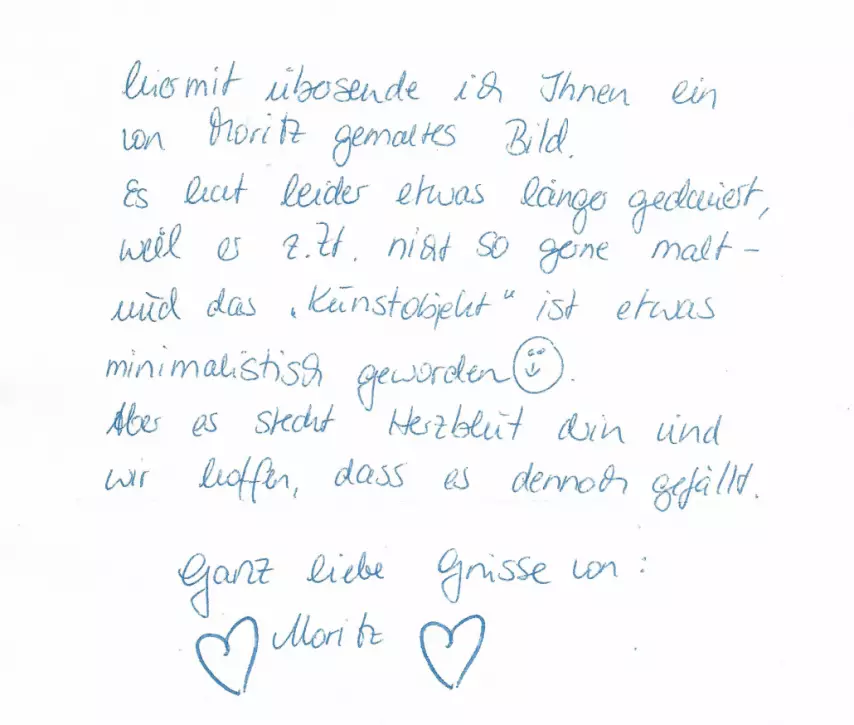 hiermit übersende ich Ihnen ein
von Moritz gemaltes Bild.
Es hat leider etwas länger gedauert,
weil er z.Zt. nicht so gerne malt -
und das „Kunstobjekt“ ist etwas
minimalistisch geworden ☺.
Aber es steckt Herzblut drin und
wir hoffen, dass es dennoch gefällt.
Ganz liebe Grüsse von:
♡ Moritz ♡